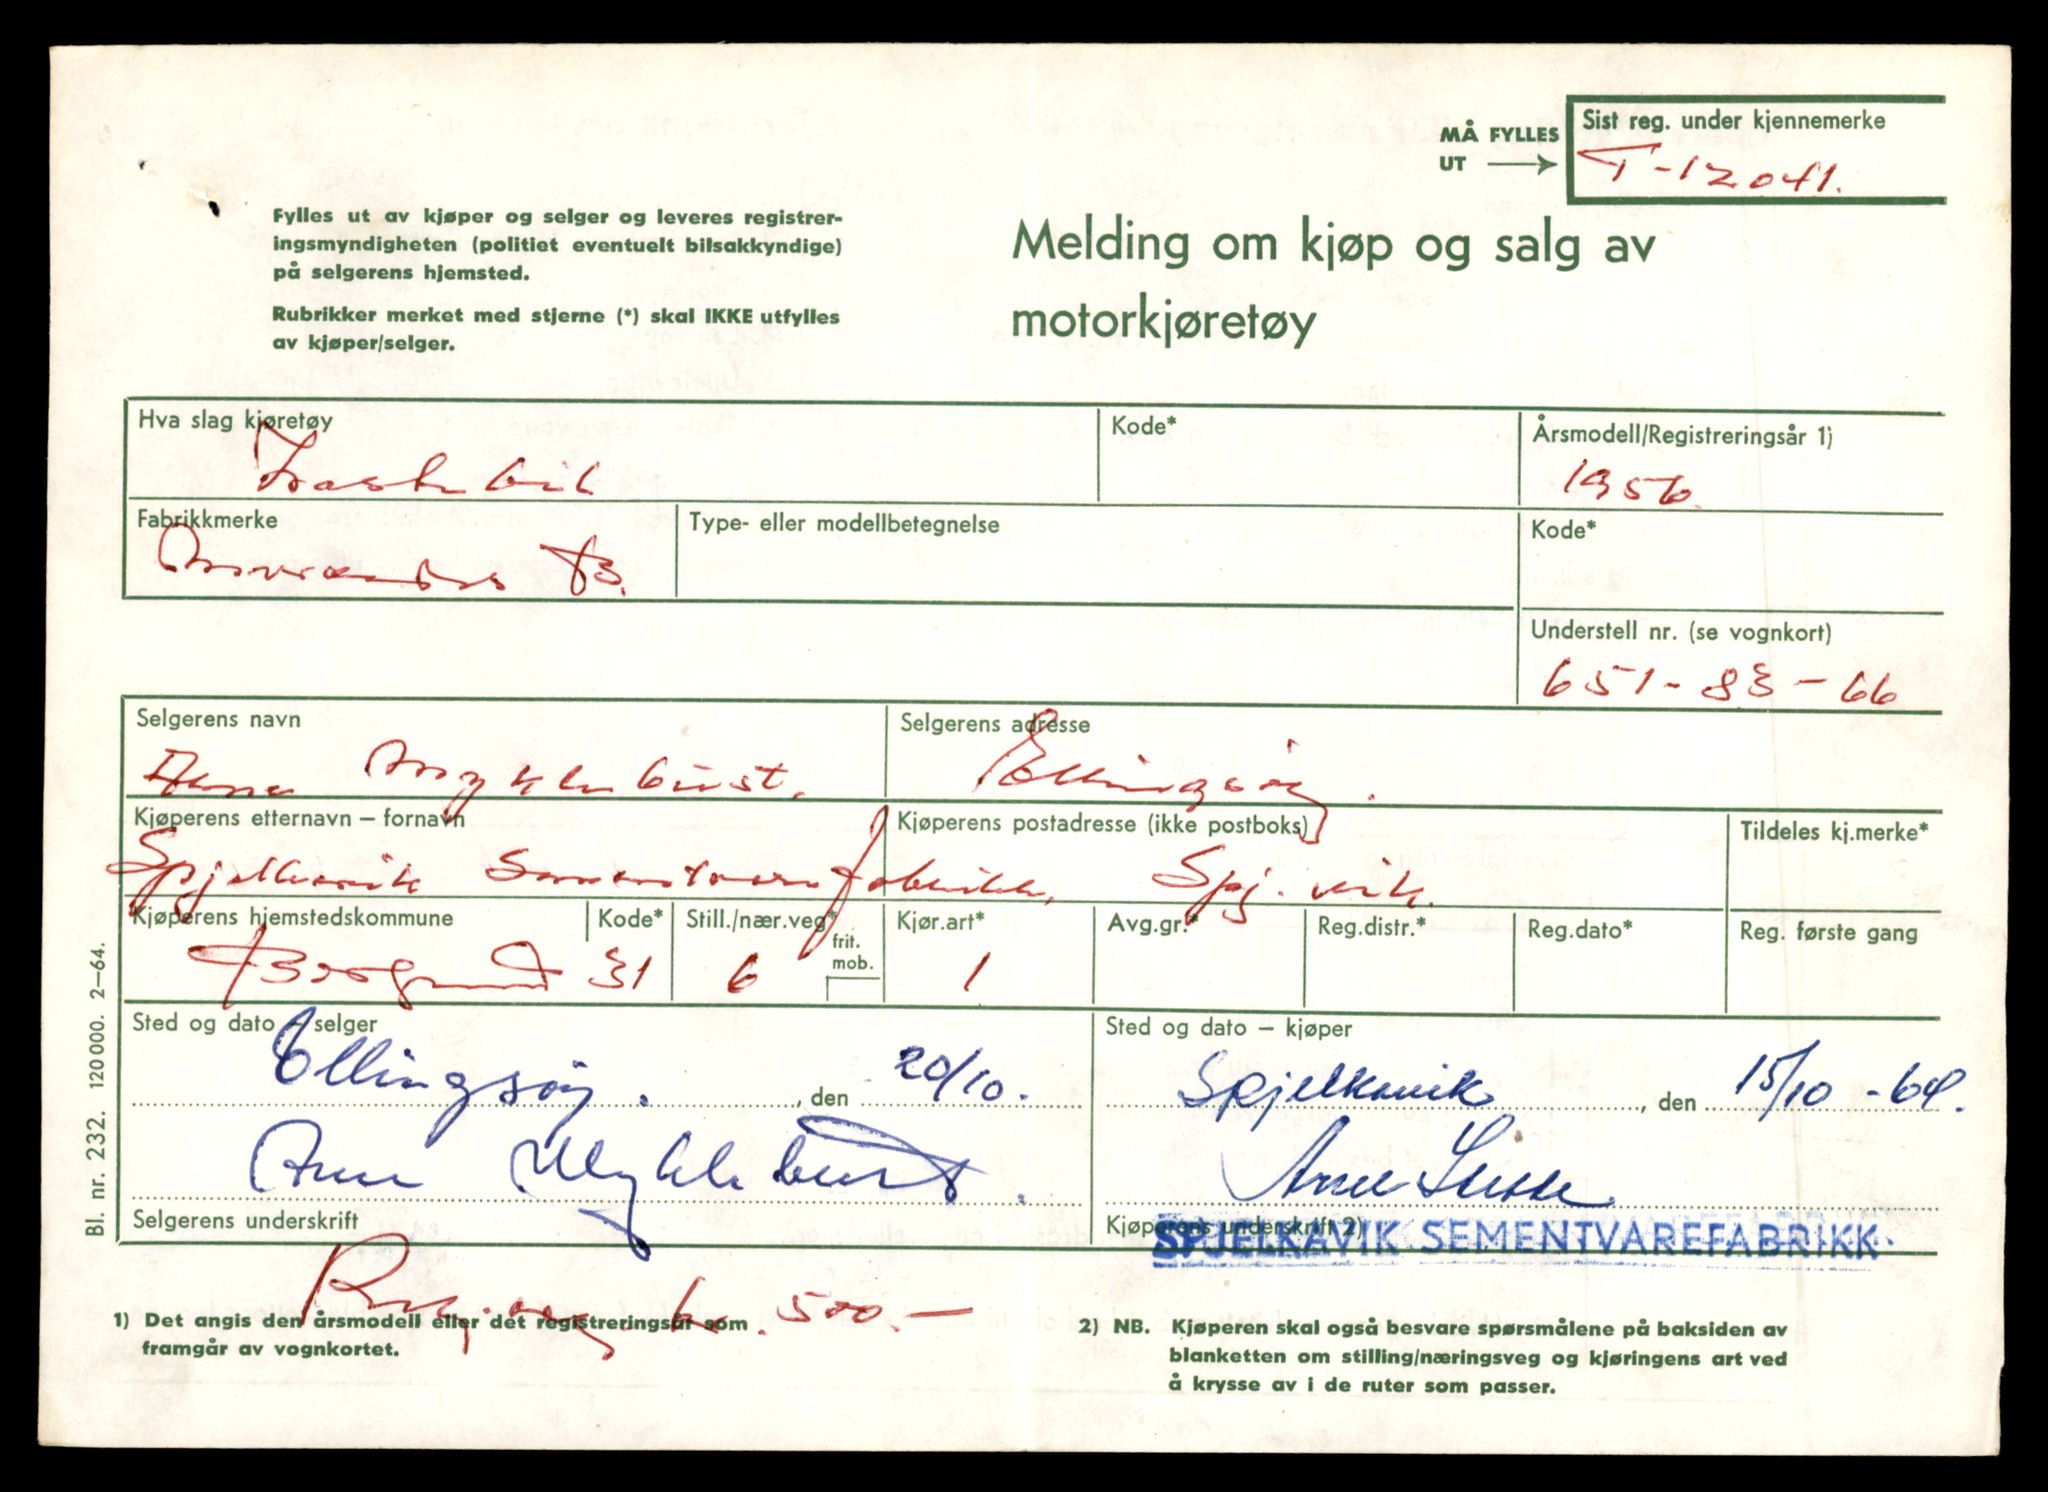 MÅ FYLLES
UT
Sist reg. under kjennemerke
T-12041.
Fylles ut av kjøper og selger og leveres registrer-
ingsmyndigheten (politiet eventuelt bilsakkyndige)
på selgerens hjemsted.
Rubrikker merket med stjerne (*) skal IKKE utfylles
av kjøper/selger.
Melding om kjøp og salg av
motorkjøretøy
Hva slag kjøretøy
Lastebil
Kode*
Årsmodell/Registreringsår 1)
1956
Fabrikkmerke
Mercedes B.
Type- eller modellbetegnelse
Kode*
Understell nr. (se vognkort)
651-83-66
Selgerens navn
Arne Myklebust.
Selgerens adresse
Ellingsøy.
Kjøperens etternavn – fornavn
Spjelkavik Sementvarefabrikk,
Kjøperens postadresse (ikke postboks)
Spj.vik.
Tildeles kj.merke*
Kjøperens hjemstedskommune
Borgund
Kode*
31
Still./nær.veg*
6
frit.
mob.
Kjør.art*
1
Avg.gr.*
Reg.distr.*
Reg.dato*
Reg. første gang
Sted og dato – selger
Ellingsøy. , den 20/10.
Arne Myklebust.
Selgerens underskrift
Sted og dato – kjøper
Spjelkavik , den 15/10 -64.
Arne
Kjøperens underskrift 2)
SPJELKAVIK SEMENTVAREFABRIKK
kr. 500.-
1) Det angis den årsmodell eller det registreringsår som
framgår av vognkortet.
2) NB. Kjøperen skal også besvare spørsmålene på baksiden av
blanketten om stilling/næringsveg og kjøringens art ved
å krysse av i de ruter som passer.
Bl. nr. 232. 120 000. 2–64.